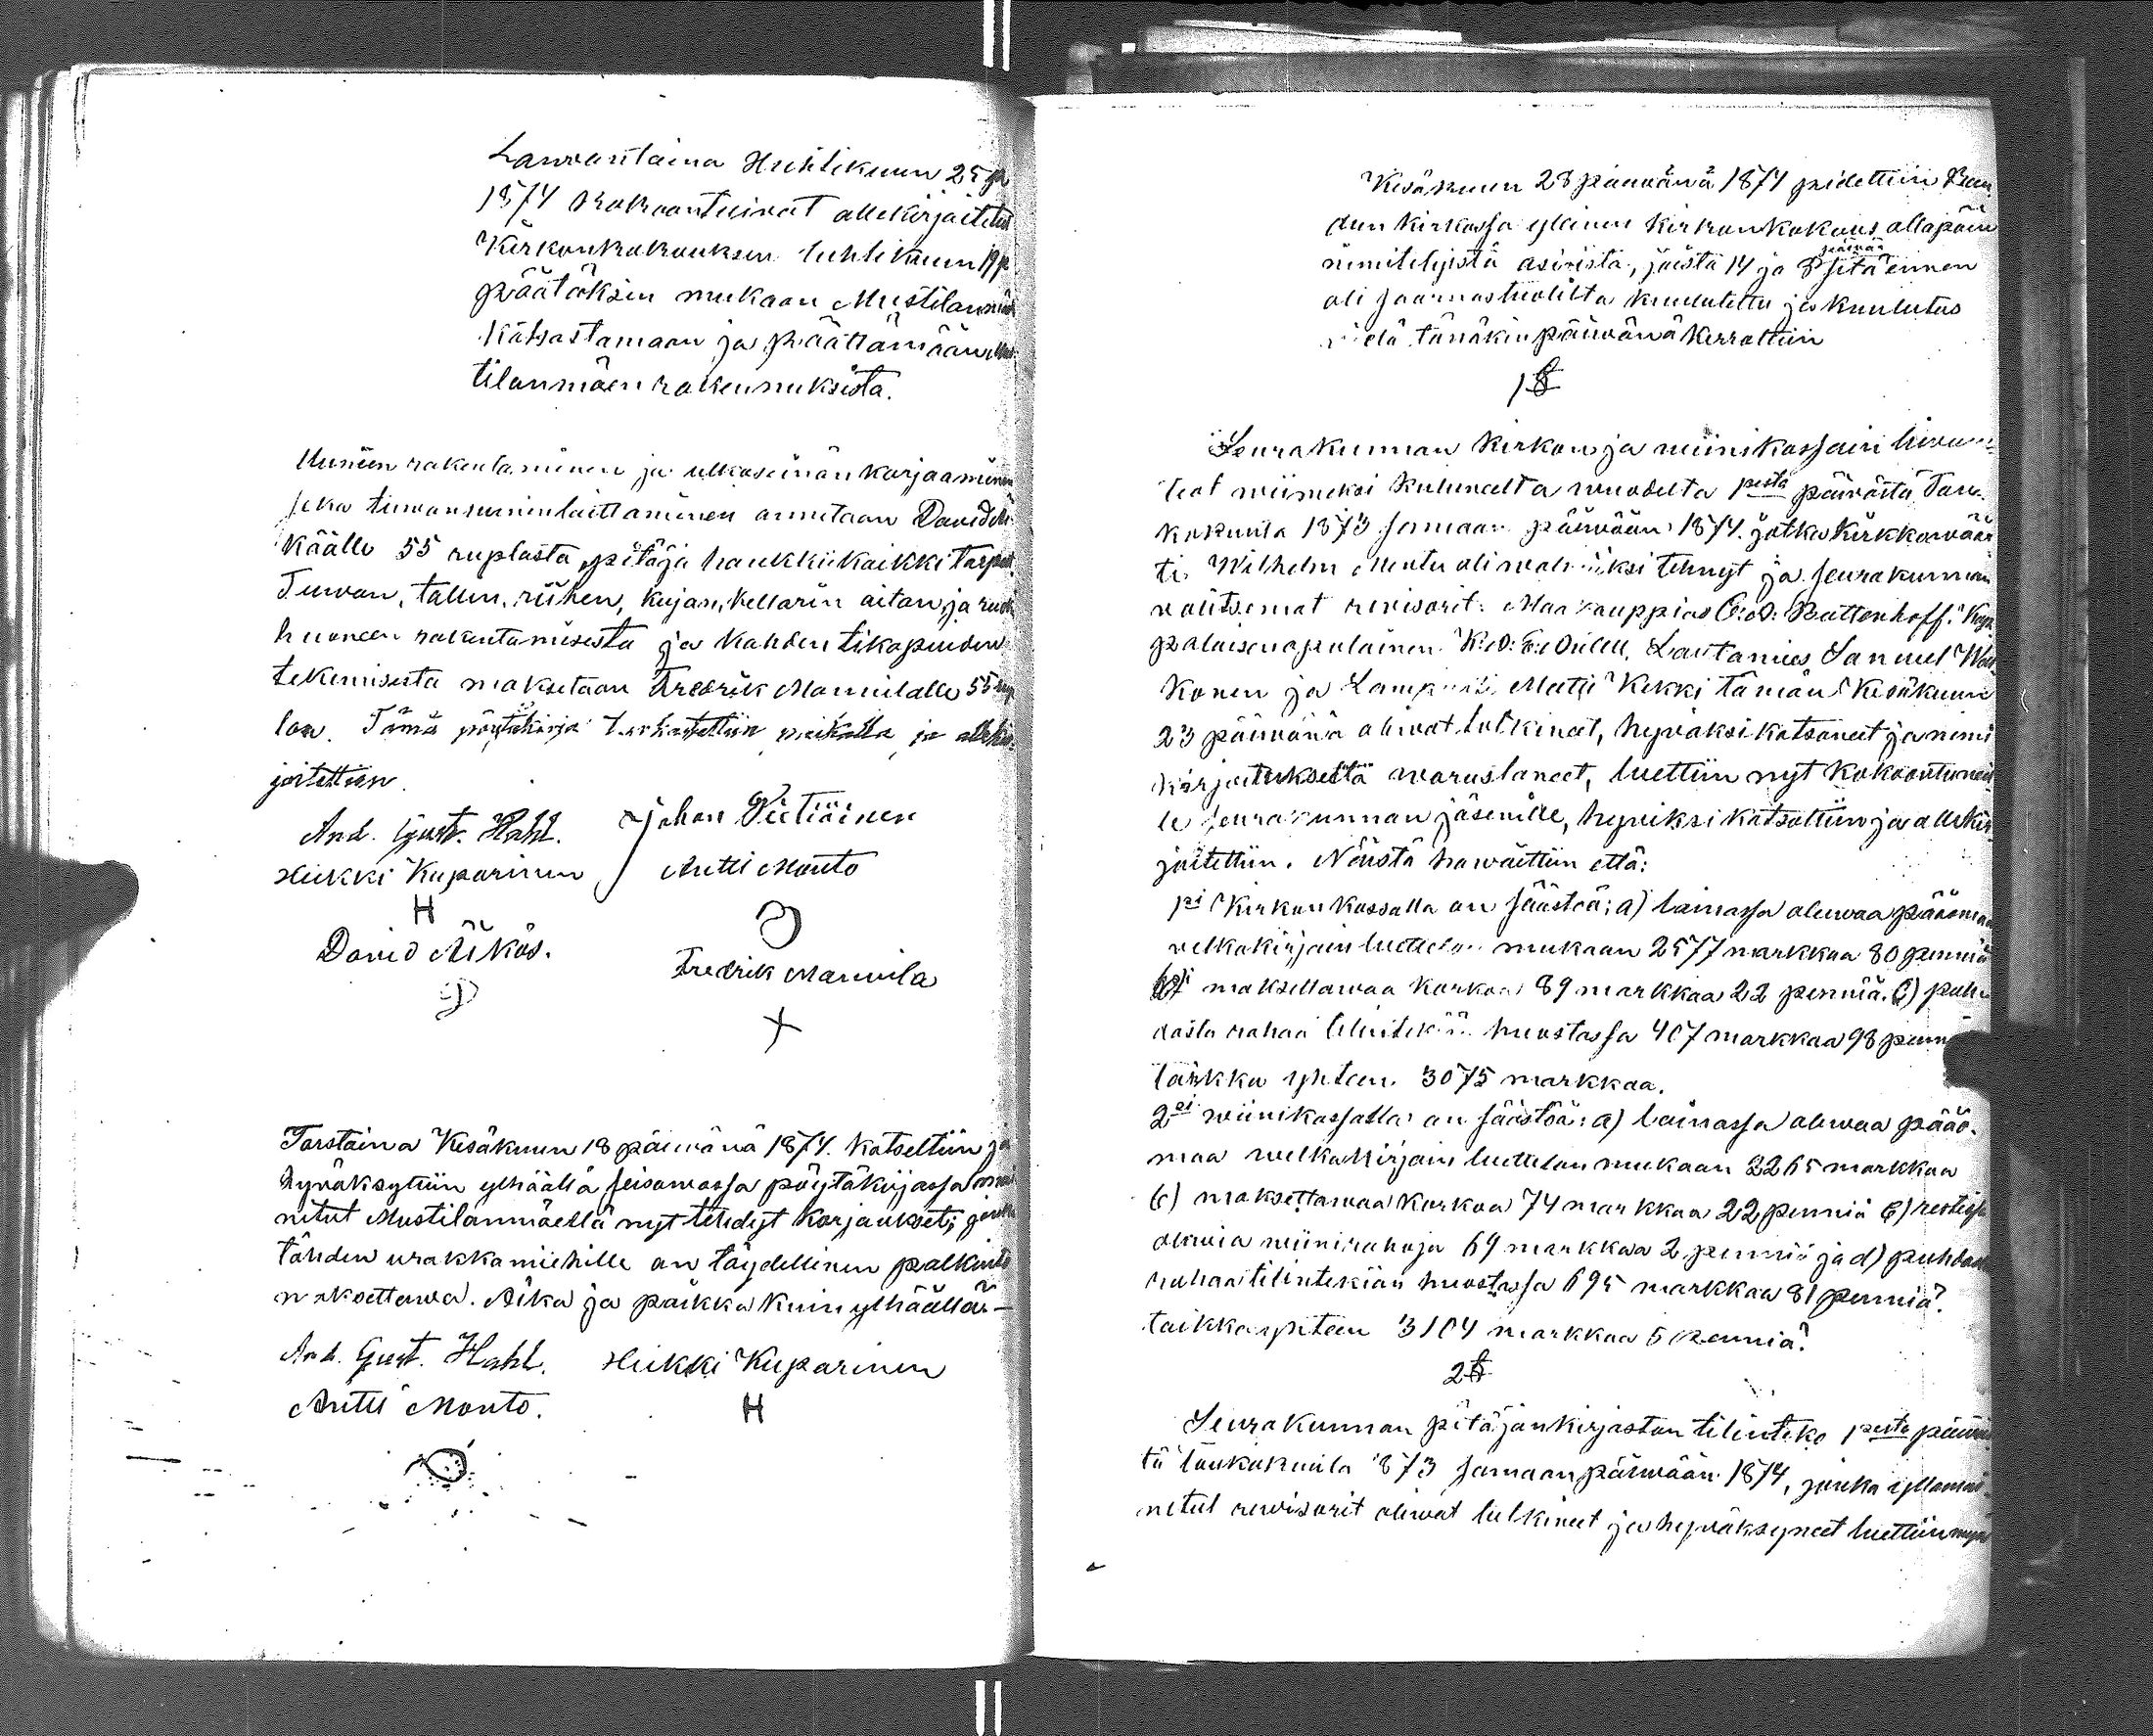 Lauvantaina Huhtikuun 25 p
1874 kokoontuivat allekirjoitetut
Kirkonkokouksen huhtikuun 19 p
päätöksen mukaan Mustilanmäk
katsastamaan ja päättämään Mus
tilanmäen rakennuksista.
Uunein rakentaminen ja ulkoseinän korjaaminen
seka tuvansuun laittaminen annetaan David Äi
käälle 55 ruplasta, pitäjä hankkii kaikki tarpeet.
Tuvan, tallin, riihen, kujan, kellarin aitan ja ruok
huoneen rakentamisesta ja kahden tikapuiden
tekemisestä maksetaan Fredrik Mannilalle 55 rup
laa. Tämä pöytäkirja tarkastettiin paikalla ja allekir
joitettiin.
And. Gust. Hahl. Johan Pietiäinen
Heikki Kuparinen Antti Monto
H
David Äikäs. Fredrik Mannila
Torstaina Kesäkuun 18 päivänä 1874. katseltiin ja
hyväksyttiin ylhäällä seisovassa pöytäkirjassa mai
nitut Mustilanmäellä nyt tehdyt korjaukset; jonka
tähden urakkamiehille on täydellinen palkinto
maksettava. Aika ja paikka kuin ylhäällä. –
And. Gust. Hahl. Heikki Kuparinen
Antti Monto. H
Kesäkuun 28 päiwänä 1874 pidettiin Rau
dun kirkossa yleinen kirkonkokous allapäin
päiwää
nimitetyistä asioista, joista 14 ja 8 sitä ennen
oli saarnastuolilta kuulutettu ja kuulutus
vielä tänäkin päiwänä kerrottiin
1 §
Seurakunnan kirkon ja wiinikassain
teot wiimeksi kuluneelta wuodelta 1pestä päiwästä Tou
kokuuta 1873 samaan päiwään 1874. jotka kirkkowäär
ti Wilhelm Montu oli walmiiksi tehnyt ja seurakunnan
valitsemat revisorit: Maakauppias Battenhoff.
palaisenapulainen Lautamies Samuel
konen ja Lampuoti Matti Kekki tämän Kesäkuun
23 päiwänä oliwat tutkineet, hyväksi katsoneet ja nimi
kirjoituksella warustaneet, luettiin nyt kokoontuneil
le seurakunnan jäsenille, hyviksi katsottiin ja allekir
joitettiin. Näistä hawaittiin että:
1si Kirkon kassalla on säästöä; a) lainassa olewaa pääomaa
velkakirjain luettelon mukaan 2577 markkaa 80 penniä
maksettawaa korkoa 89 markkaa 22 penniä. C) puh
dasta rahaa tilintekiän huostassa 407 markkaa 98 penn
taikka yhteen 3075 markkaa.
2si wiinikassalla on säästöä: a) lainassa olewaa pääo
maa welkakirjain luettelon mukaan 2265 markkaa
b) maksettawaa korkoa 74 markkaa 22 penniä C) restissa
olewia wiinirahoja 69 markkaa 2 penniä ja d) puhdast
rahaa tilintekiän huostassa 695 markkaa 81 penniä.
taikka yhteen 3104 markkaa 5 penniä.
2 §
Seurakunnan pitäjänkirjaston tilinteko 1pestä päiwäs
tä toukokuuta 1873 samaan päiwään 1874, jonka yllämai
nitut rewisorit oliwat tutkineet ja hyväksyneet luettiin myös